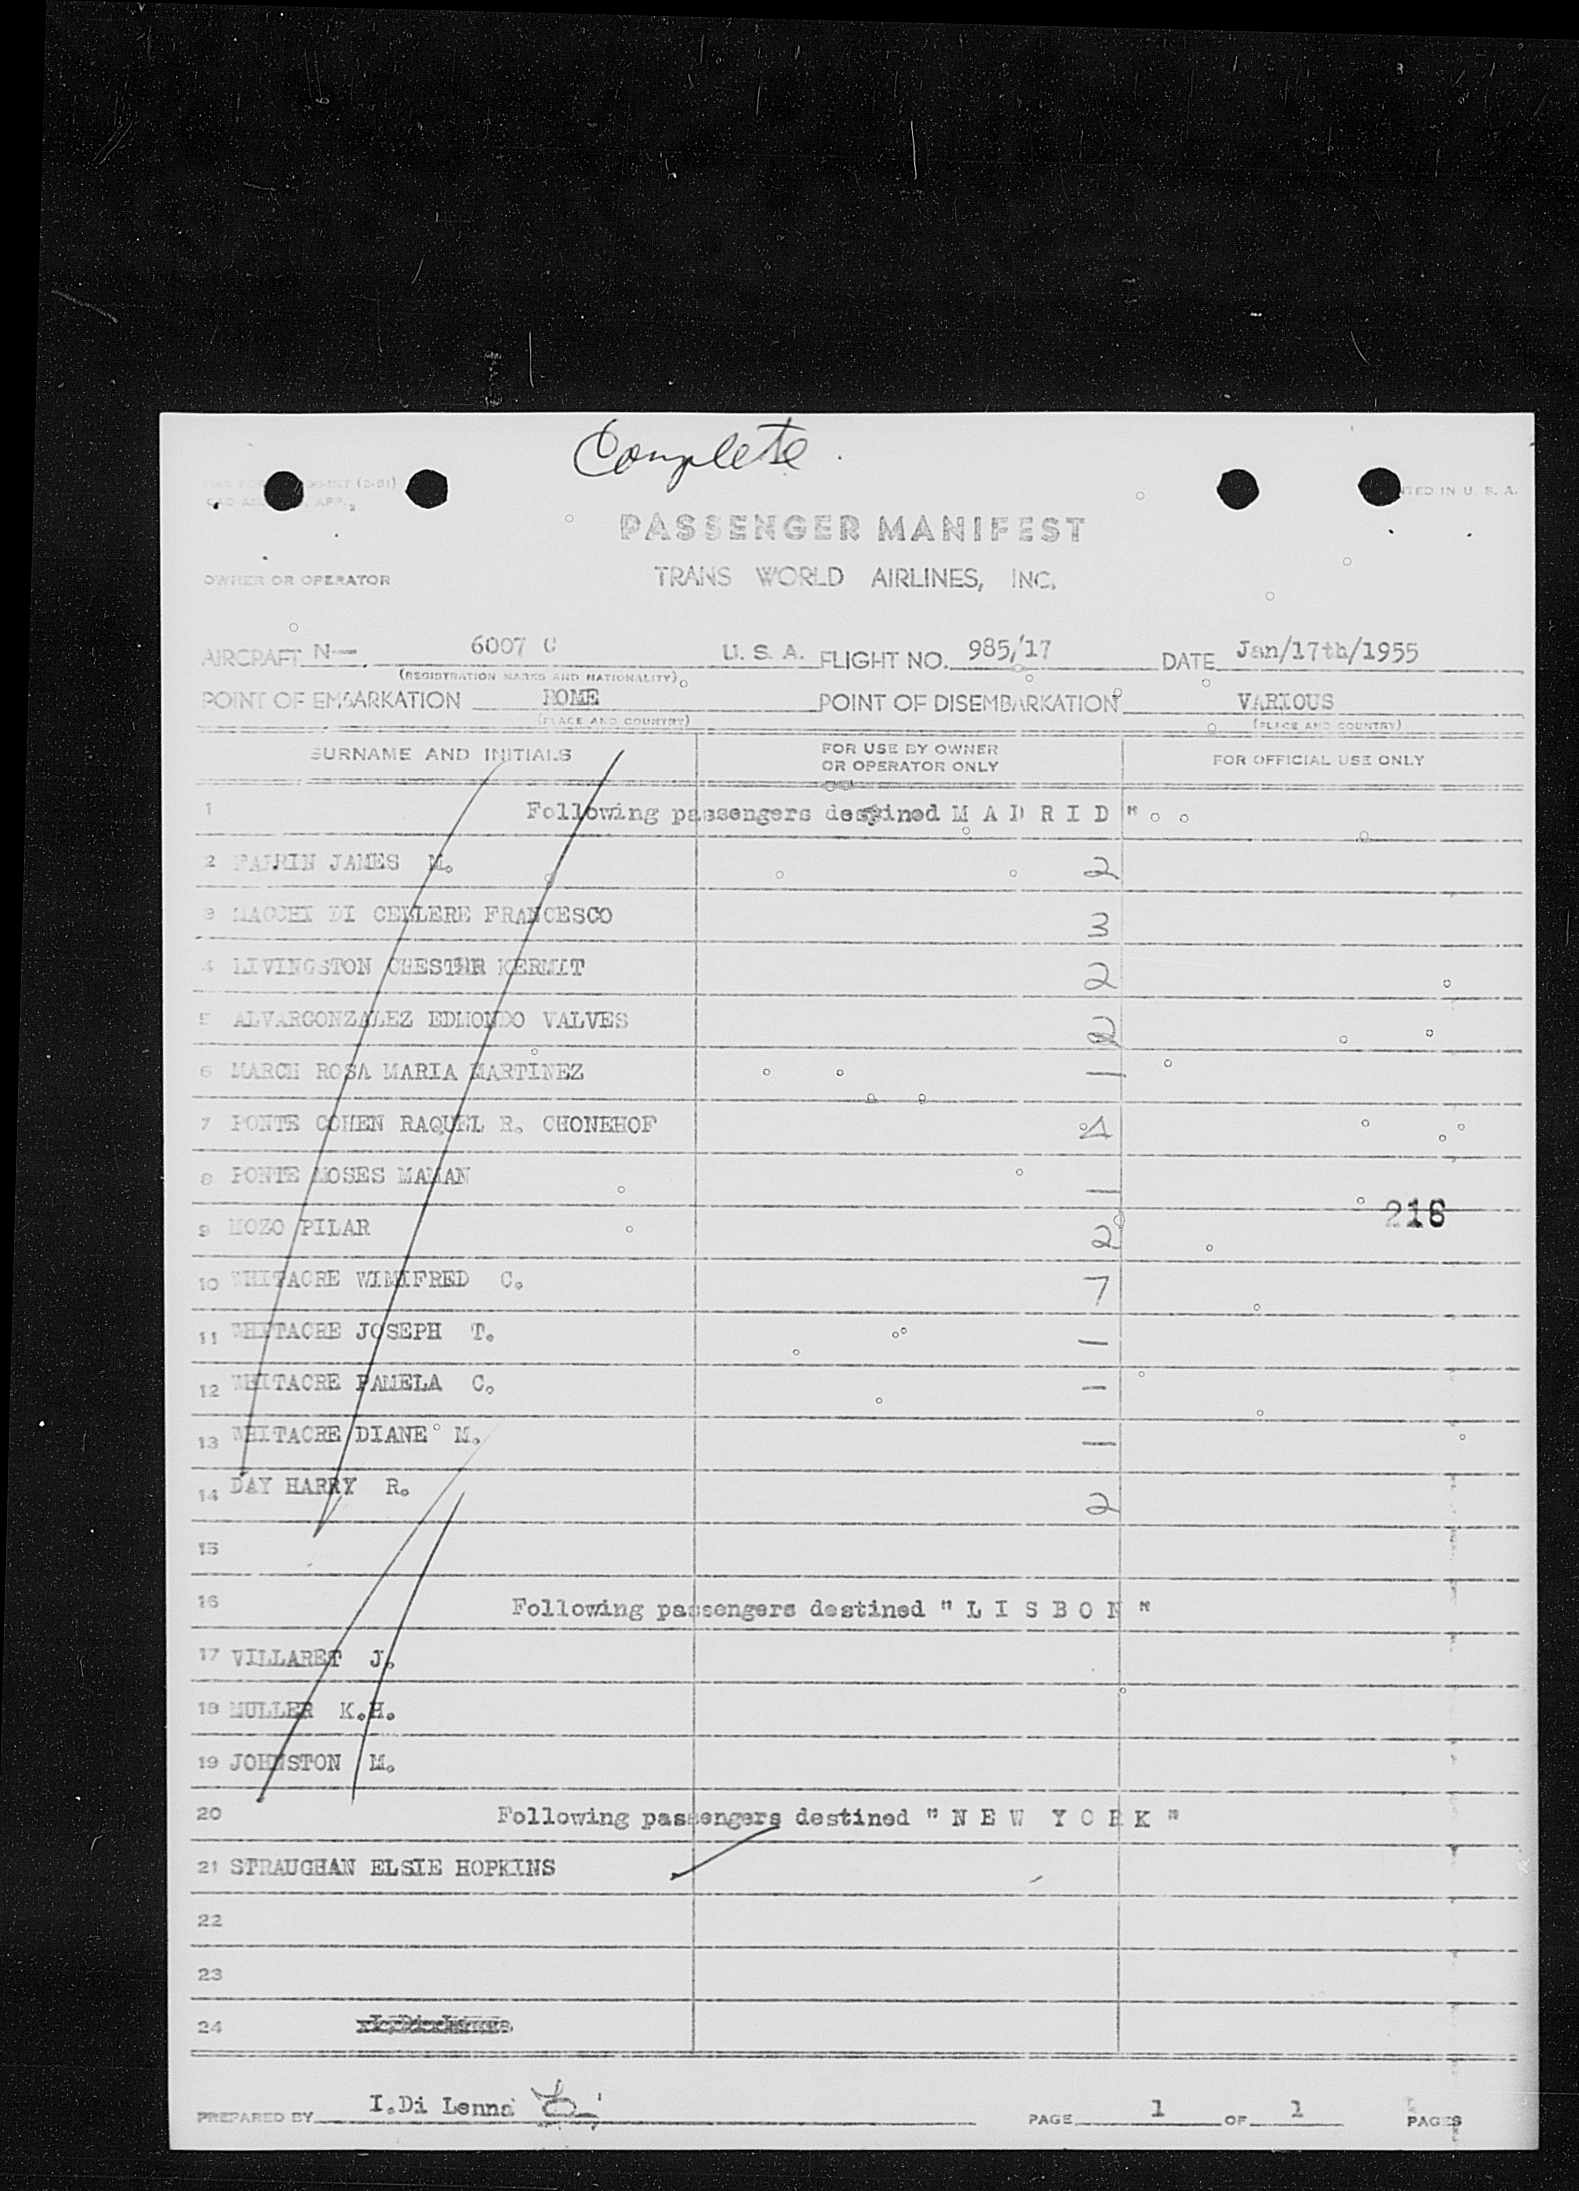 Complete
PRINTED IN U. S. A.
PASSENGER MANIFEST
OWNER OR OPERATOR TRANS WORLD AIRLINES, INC.
AIRCRAFT N— 6007 C U. S. A. FLIGHT NO. 985/17 DATE Jan/17th/1955
(REGISTRATION MARKS AND NATIONALITY)
POINT OF EMBARKATION ROME POINT OF DISEMBARKATION VARIOUS
(PLACE AND COUNTRY) (PLACE AND COUNTRY)
SURNAME AND INITIALS FOR USE BY OWNER OR OPERATOR ONLY FOR OFFICIAL USE ONLY
1 Following passengers destined M A D R I D "
2 JAMES M. 2
3 MACCHI DI CELLERE FRANCESCO 3
4 LIVINGSTON CHESTER KERMIT 2
5 ALVARGONZALEZ EDMONDO VALVES 2
6 MARCH ROSA MARIA MARTINEZ —
7 PONTE COHEN RAQUEL R. CHONEHOF 4
8 PONTE MOSES MAMAN —
9 MOZO PILAR 2
216
10 WHITACRE WINIFRED C. 7
11 WHITACRE JOSEPH T. —
12 WHITACRE PAMELA C. —
13 WHITACRE DIANE M. —
14 DAY HARRY R. 2
15
16 Following passengers destined " L I S B O N "
17 VILLARET J.
18 MULLER K.H.
19 JOHNSTON M.
20 Following passengers destined " N E W Y O R K "
21 STRAUGHAN ELSIE HOPKINS
22
23
24
PREPARED BY I.Di Lenna PAGE 1 OF 1 PAGES